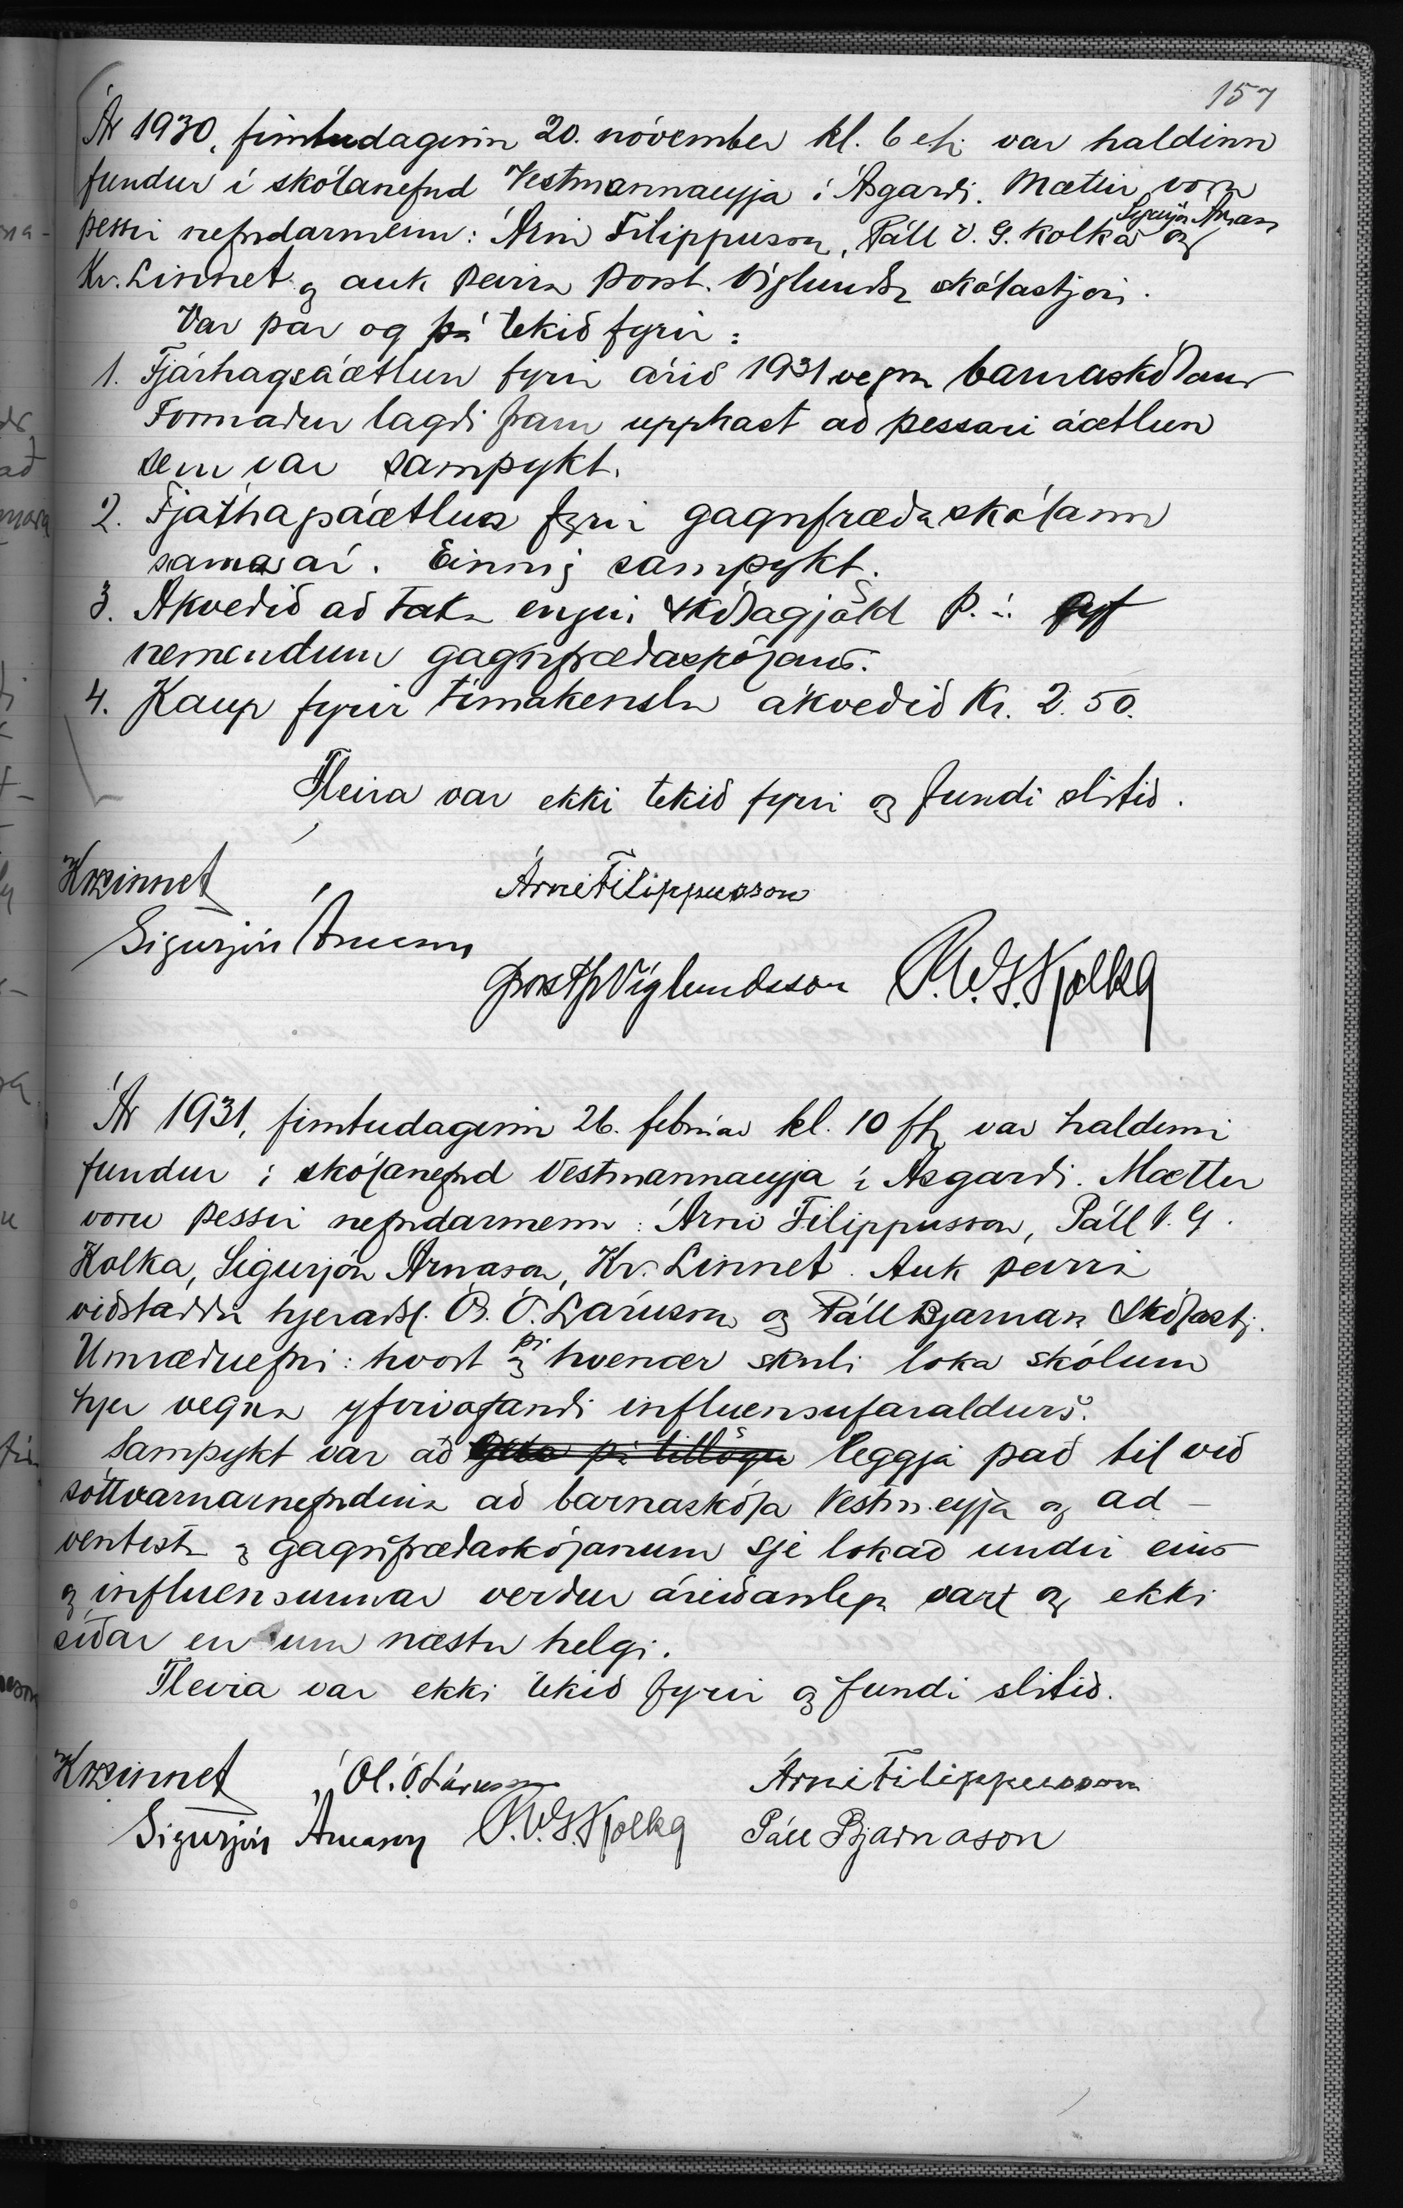 157
Ár 1930, fimtudaginn 20. nóvember kl. 6 eh. var haldinn
fundur í skólanefnd Vestmannaeyja í Ásgarði. Mættir voru
þessir nefndarmenn: Árni Filippusson, Páll V. G. Kolka Sigurjón Árnason og
Kr. Linnet og auk þeirra Þorst. Víglundss. skólastjóri.
Var þar og þá tekið fyrir:
1. Fjárhagsáætlun fyrir árið 1931 vegna barnaskólans
Formaður lagði fram upphast að þessari áætlun
sem var samþykt.
2. Fjárhagsáætlun fyrir gagnfræðaskólann
sama ár. Einnig samþykt.
3. Ákveðið að taka engin skólagjöld þ. á. af
nemendum gagnfræðaskólans.
4. Kaup fyrir tímakenslu ákveðið kr. 2.50.
Fleira var ekki tekið fyrir og fundi slitið.
Kr Linnet Árni Filippusson
Sigurjón Árnason
Þorst Þ Víglundsson P. V. G. Kolka
Ár 1931, fimtudaginn 26. febrúar kl. 10 fh var haldinn
fundur í skólanefnd Vestmannaeyja í Ásgarði. Mættir
voru þessir nefndarmenn: Árni Filippusson, Páll V. G.
Kolka, Sigurjón Árnason, Kr. Linnet. Auk þeirra
viðstaddir hjeraðsl. Ól. Ó. Lárusson og Páll Bjarnas. skólastj.
Umræðuefni: hvort og þá hvenær skuli loka skólum
hjer vegna yfirvofandi influensufaraldurs.
Samþykt var að leggja það til við
sóttvarnarnefndina að barnaskóla Vestm.eyja og ad-
ventista og gagnfræðaskólanum sje lokað undir eins
og influensunnar verður áreiðanlega vart og ekki
síðar en um næstu helgi.
Fleira var ekki tekið fyrir og fundi slitið.
Kr Linnet Ól. Ó. Lárusson Árni Filippusson
Sigurjón Árnason P. V. G. Kolka Páll Bjarnason